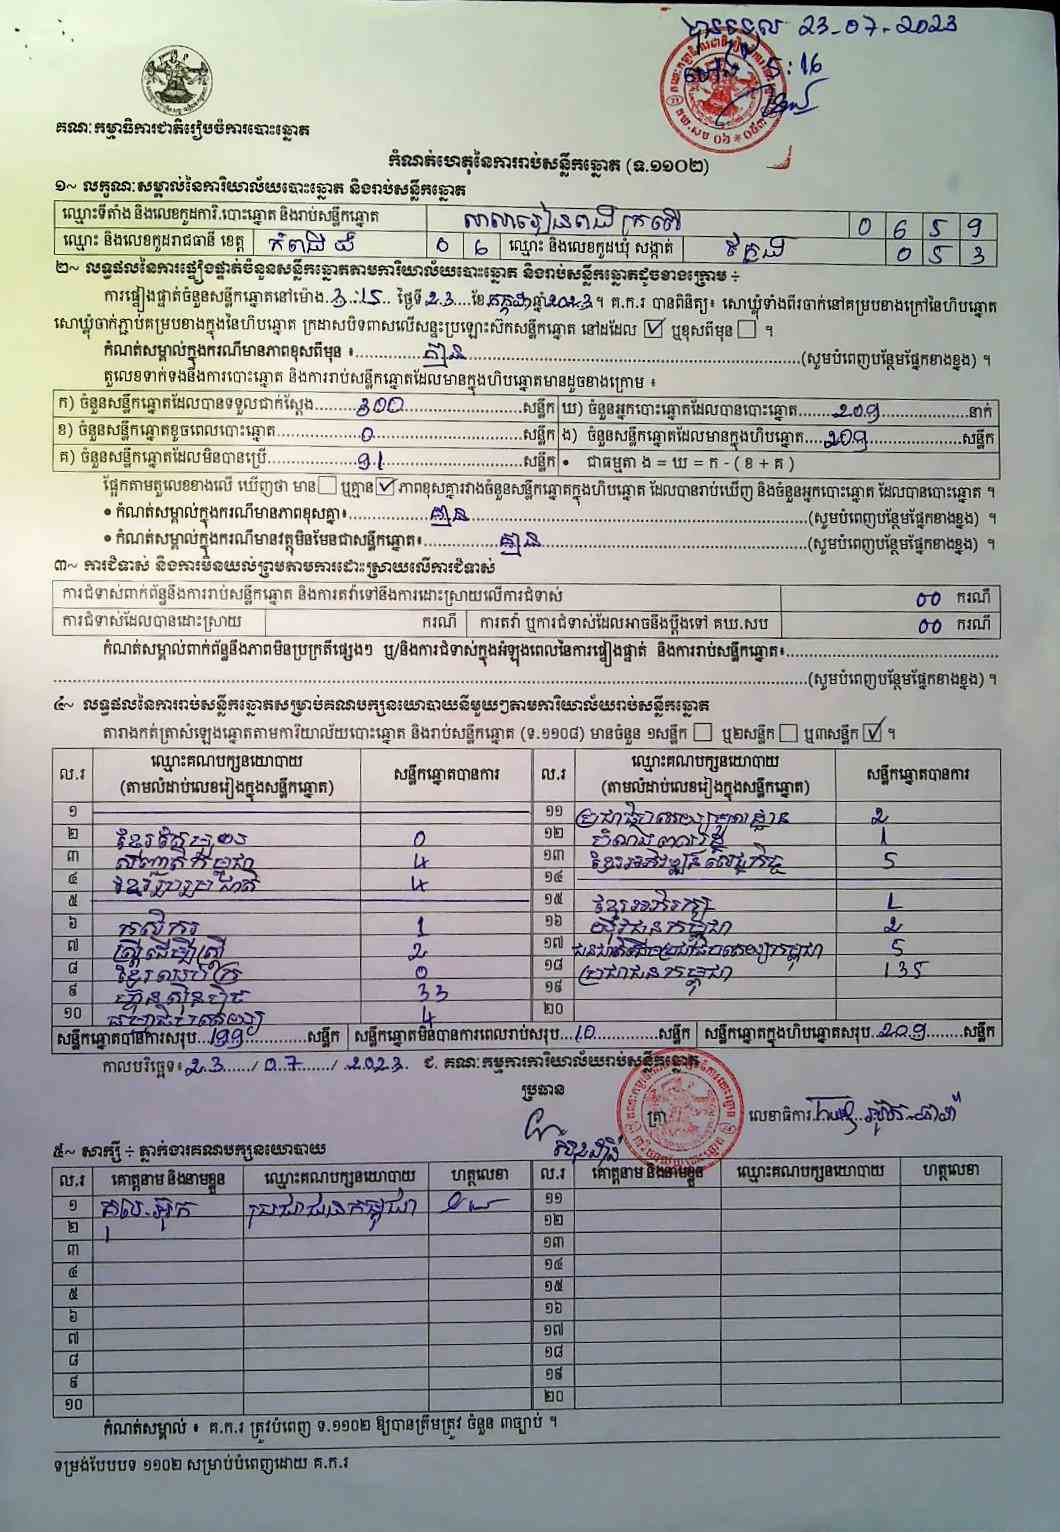 បានទទួល 23-07-2023
ម៉ោង 5:16
គណៈកម្មាធិការជាតិរៀបចំការបោះឆ្នោត
កំណត់ហេតុនៃការរាប់សន្លឹកឆ្នោត (ទ.១១០២)
១~ លក្ខណៈសម្គាល់នៃការិយាល័យបោះឆ្នោត និងរាប់សន្លឹកឆ្នោត
ឈ្មោះទីតាំង និងលេខកូដការិ.បោះឆ្នោត និងរាប់សន្លឹកឆ្នោត 0 6 5 9
ឈ្មោះ និងលេខកូដរាជធានី ខេត្ត កំពង់ធំ 0 6 ឈ្មោះ និងលេខកូដឃុំ សង្កាត់ 0 5 3
២~ លទ្ធផលនៃការផ្ទៀងផ្ទាត់ចំនួនសន្លឹកឆ្នោតតាមការិយាល័យបោះឆ្នោត និងរាប់សន្លឹកឆ្នោតដូចខាងក្រោម ÷
ការផ្ទៀងផ្ទាត់ចំនួនសន្លឹកឆ្នោតនៅម៉ោង 3:15 ថ្ងៃទី 23 ខែ កក្កដា ឆ្នាំ 2023 ។ គ.ក.រ បានពិនិត្យ៖ សោឃ្លុំទាំងពីរចាក់នៅគម្របខាងក្រៅនៃហិបឆ្នោត
សោឃ្លុំចាក់ភ្ជាប់គម្របខាងក្នុងនៃហិបឆ្នោត ក្រដាសបិទពាសលើសន្ទះប្រឡោះស៊កសន្លឹកឆ្នោត នៅដដែល ☑ ឬខុសពីមុន ☐ ។
កំណត់សម្គាល់ក្នុងករណីមានភាពខុសពីមុន ៖ គ្មាន (សូមបំពេញបន្ថែមផ្នែកខាងខ្នង) ។
តួលេខទាក់ទងនឹងការបោះឆ្នោត និងការរាប់សន្លឹកឆ្នោតដែលមានក្នុងហិបឆ្នោតមានដូចខាងក្រោម ៖
ក) ចំនួនសន្លឹកឆ្នោតដែលបានទទួលជាក់ស្តែង 300 សន្លឹក ឃ) ចំនួនអ្នកបោះឆ្នោតដែលបានបោះឆ្នោត 209 នាក់
ខ) ចំនួនសន្លឹកឆ្នោតខូចពេលបោះឆ្នោត 0 សន្លឹក ង) ចំនួនសន្លឹកឆ្នោតដែលមានក្នុងហិបឆ្នោត 209 សន្លឹក
គ) ចំនួនសន្លឹកឆ្នោតដែលមិនបានប្រើ 91 សន្លឹក • ជាធម្មតា ង = ឃ = ក - ( ខ + គ )
ផ្អែកតាមតួលេខខាងលើ ឃើញថា មាន ☐ ឬគ្មាន ☑ ភាពខុសគ្នារវាងចំនួនសន្លឹកឆ្នោតក្នុងហិបឆ្នោត ដែលបានរាប់ឃើញ និងចំនួនអ្នកបោះឆ្នោត ដែលបានបោះឆ្នោត ។
• កំណត់សម្គាល់ក្នុងករណីមានភាពខុសគ្នា៖ គ្មាន (សូមបំពេញបន្ថែមផ្នែកខាងខ្នង) ។
• កំណត់សម្គាល់ក្នុងករណីមានវត្ថុមិនមែនជាសន្លឹកឆ្នោត៖ គ្មាន (សូមបំពេញបន្ថែមផ្នែកខាងខ្នង) ។
៣~ ការជំទាស់ និងការមិនយល់ព្រមតាមការដោះស្រាយលើការជំទាស់
ការជំទាស់ពាក់ព័ន្ធនឹងការរាប់សន្លឹកឆ្នោត និងការតវ៉ាទៅនឹងការដោះស្រាយលើការជំទាស់ 00 ករណី
ការជំទាស់ដែលបានដោះស្រាយ ករណី ការតវ៉ា ឬការជំទាស់ដែលអាចនឹងប្តឹងទៅ គឃ.សប 00 ករណី
កំណត់សម្គាល់ពាក់ព័ន្ធនឹងភាពមិនប្រក្រតីផ្សេងៗ ឬ/និងការជំទាស់ក្នុងអំឡុងពេលនៃការផ្ទៀងផ្ទាត់ និងការរាប់សន្លឹកឆ្នោត៖
(សូមបំពេញបន្ថែមផ្នែកខាងខ្នង) ។
៤~ លទ្ធផលនៃការរាប់សន្លឹកឆ្នោតសម្រាប់គណបក្សនយោបាយនីមួយៗតាមការិយាល័យរាប់សន្លឹកឆ្នោត
តារាងកត់ត្រាសំឡេងឆ្នោតតាមការិយាល័យបោះឆ្នោត និងរាប់សន្លឹកឆ្នោត (ទ.១១០៨) មានចំនួន ១សន្លឹក ☐ ឬ២សន្លឹក ☐ ឬ៣សន្លឹក ☑ ។
ល.រ ឈ្មោះគណបក្សនយោបាយ (តាមលំដាប់លេខរៀងក្នុងសន្លឹកឆ្នោត) សន្លឹកឆ្នោតបានការ ល.រ ឈ្មោះគណបក្សនយោបាយ (តាមលំដាប់លេខរៀងក្នុងសន្លឹកឆ្នោត) សន្លឹកឆ្នោតបានការ
១ ១១ ប្រជាធិបតេយ្យមូលដ្ឋាន 2
២ ខ្មែរតែមួយ 0 ១២ 1
៣ សញ្ជាតិកម្ពុជា 4 ១៣ ខ្មែរអភិវឌ្ឍន៍សេដ្ឋកិច្ច 5
៤ ខ្មែររួបរួមជាតិ 4 ១៤
៥ ១៥ ខ្មែរអភិរក្ស 1
៦ កសិករ 1 ១៦ យុវជនកម្ពុជា 2
៧ ស្ត្រីដើម្បីស្ត្រី 2 ១៧ 5
៨ ខ្មែរឈប់ក្រ 0 ១៨ ប្រជាជនកម្ពុជា 135
៩ ហ៊្វុនស៊ិនប៉ិច 33 ១៩
១០ ធម្មាធិបតេយ្យ 4 ២០
សន្លឹកឆ្នោតបានការសរុប 199 សន្លឹក សន្លឹកឆ្នោតមិនបានការពេលរាប់សរុប 10 សន្លឹក សន្លឹកឆ្នោតក្នុងហិបឆ្នោតសរុប 209 សន្លឹក
កាលបរិច្ឆេទ៖ 23 / 07 / 2023 ជ. គណៈកម្មការការិយាល័យរាប់សន្លឹកឆ្នោត
ប្រធាន
ត្រា លេខាធិការ
៥~ សាក្សី ÷ ភ្នាក់ងារគណបក្សនយោបាយ
ល.រ គោត្តនាម និងនាមខ្លួន ឈ្មោះគណបក្សនយោបាយ ហត្ថលេខា ល.រ គោត្តនាម និងនាមខ្លួន ឈ្មោះគណបក្សនយោបាយ ហត្ថលេខា
១ ប្រជាជនកម្ពុជា ១១
២ ១២
៣ ១៣
៤ ១៤
៥ ១៥
៦ ១៦
៧ ១៧
៨ ១៨
៩ ១៩
១០ ២០
កំណត់សម្គាល់ ៖ គ.ក.រ ត្រូវបំពេញ ទ.១១០២ ឱ្យបានត្រឹមត្រូវ ចំនួន ៣ច្បាប់ ។
ទម្រង់បែបបទ ១១០២ សម្រាប់បំពេញដោយ គ.ក.រ